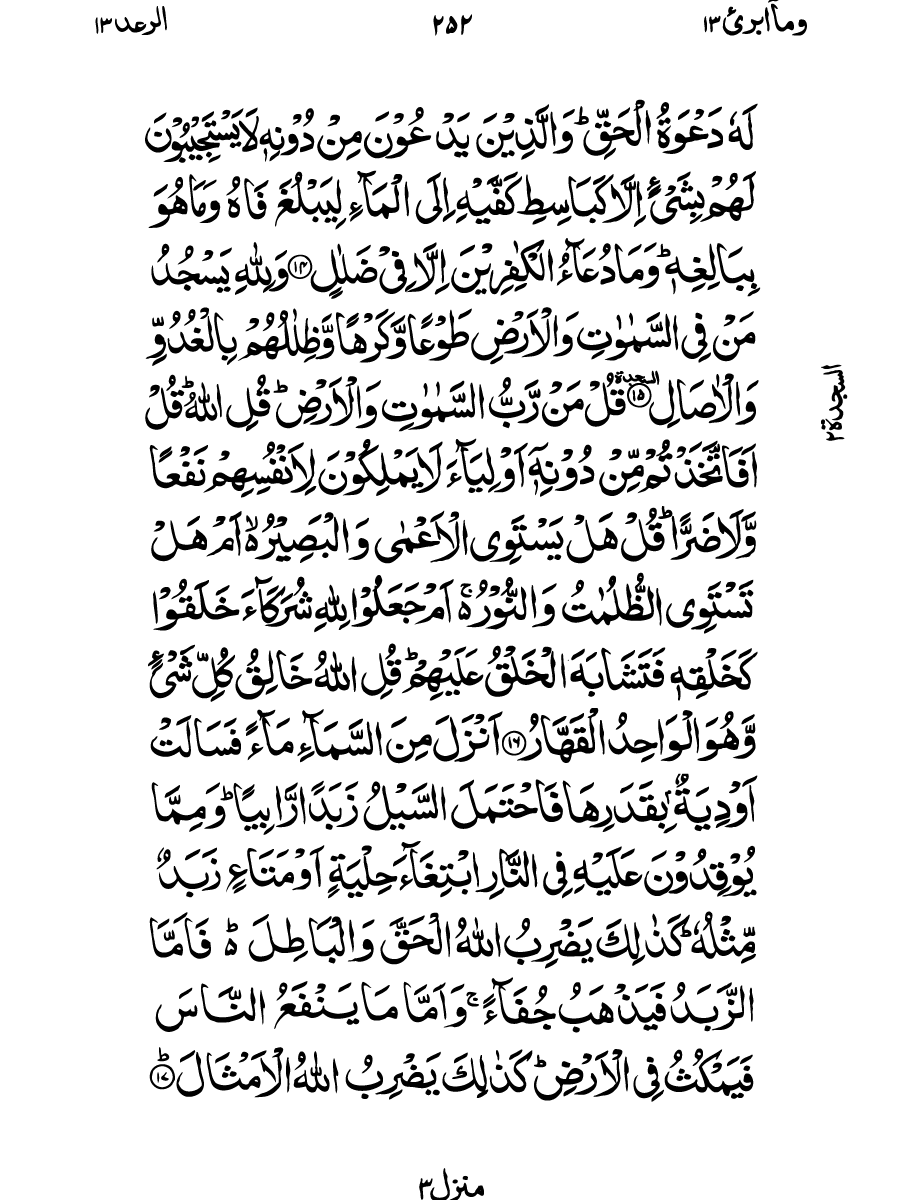 ومآابرئ۱۳ ۲۵۲ الرعد۱۳
لَهٗ دَعْوَةُ الْحَقِّ ؕ وَالَّذِيْنَ يَدْعُوْنَ مِنْ دُوْنِهٖ لَا يَسْتَجِيْبُوْنَ
لَهُمْ بِشَىْءٍ اِلَّا كَبَاسِطِ كَفَّيْهِ اِلَى الْمَآءِ لِيَبْلُغَ فَاهُ وَمَا هُوَ
بِبَالِغِهٖ ؕ وَمَا دُعَآءُ الْكٰفِرِيْنَ اِلَّا فِىْ ضَلٰلٍ ﴿۱۴﴾ وَلِلّٰهِ يَسْجُدُ
مَنْ فِى السَّمٰوٰتِ وَالْاَرْضِ طَوْعًا وَّكَرْهًا وَّظِلٰلُهُمْ بِالْغُدُوِّ
وَالْاٰصَالِ ﴿۱۵﴾ السجدة قُلْ مَنْ رَّبُّ السَّمٰوٰتِ وَالْاَرْضِ ؕ قُلِ اللّٰهُ ؕ قُلْ
السجدة۲
اَفَاتَّخَذْتُمْ مِّنْ دُوْنِهٖۤ اَوْلِيَآءَ لَا يَمْلِكُوْنَ لِاَنْفُسِهِمْ نَفْعًا
وَّلَا ضَرًّا ؕ قُلْ هَلْ يَسْتَوِى الْاَعْمٰى وَالْبَصِيْرُ ۙ اَمْ هَلْ
تَسْتَوِى الظُّلُمٰتُ وَالنُّوْرُ ۚ اَمْ جَعَلُوْا لِلّٰهِ شُرَكَآءَ خَلَقُوْا
كَخَلْقِهٖ فَتَشَابَهَ الْخَلْقُ عَلَيْهِمْ ؕ قُلِ اللّٰهُ خَالِقُ كُلِّ شَىْءٍ
وَّهُوَ الْوَاحِدُ الْقَهَّارُ ﴿۱۶﴾ اَنْزَلَ مِنَ السَّمَآءِ مَآءً فَسَالَتْ
اَوْدِيَةٌۢ بِقَدَرِهَا فَاحْتَمَلَ السَّيْلُ زَبَدًا رَّابِيًا ؕ وَمِمَّا
يُوْقِدُوْنَ عَلَيْهِ فِى النَّارِ ابْتِغَآءَ حِلْيَةٍ اَوْ مَتَاعٍ زَبَدٌ
مِّثْلُهٗ ؕ كَذٰلِكَ يَضْرِبُ اللّٰهُ الْحَقَّ وَالْبَاطِلَ ؕ فَاَمَّا
الزَّبَدُ فَيَذْهَبُ جُفَآءً ۚ وَاَمَّا مَا يَنْفَعُ النَّاسَ
فَيَمْكُثُ فِى الْاَرْضِ ؕ كَذٰلِكَ يَضْرِبُ اللّٰهُ الْاَمْثَالَ ؕ ﴿۱۷﴾
منزل۳